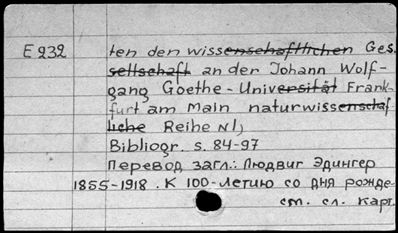 E 232 ten den wissenschaftlichen Ges.
sellschaft an der Johann Wolf-
gang Goethe-Universität Frank-
furt am Main naturwissenschaf
liche Reihe N1,
Bibliogr. s. 84-97
Перевод загл.: Людвиг Эдингер
1855-1918. К 100-летию со дня рожде-
см. сл. карт.